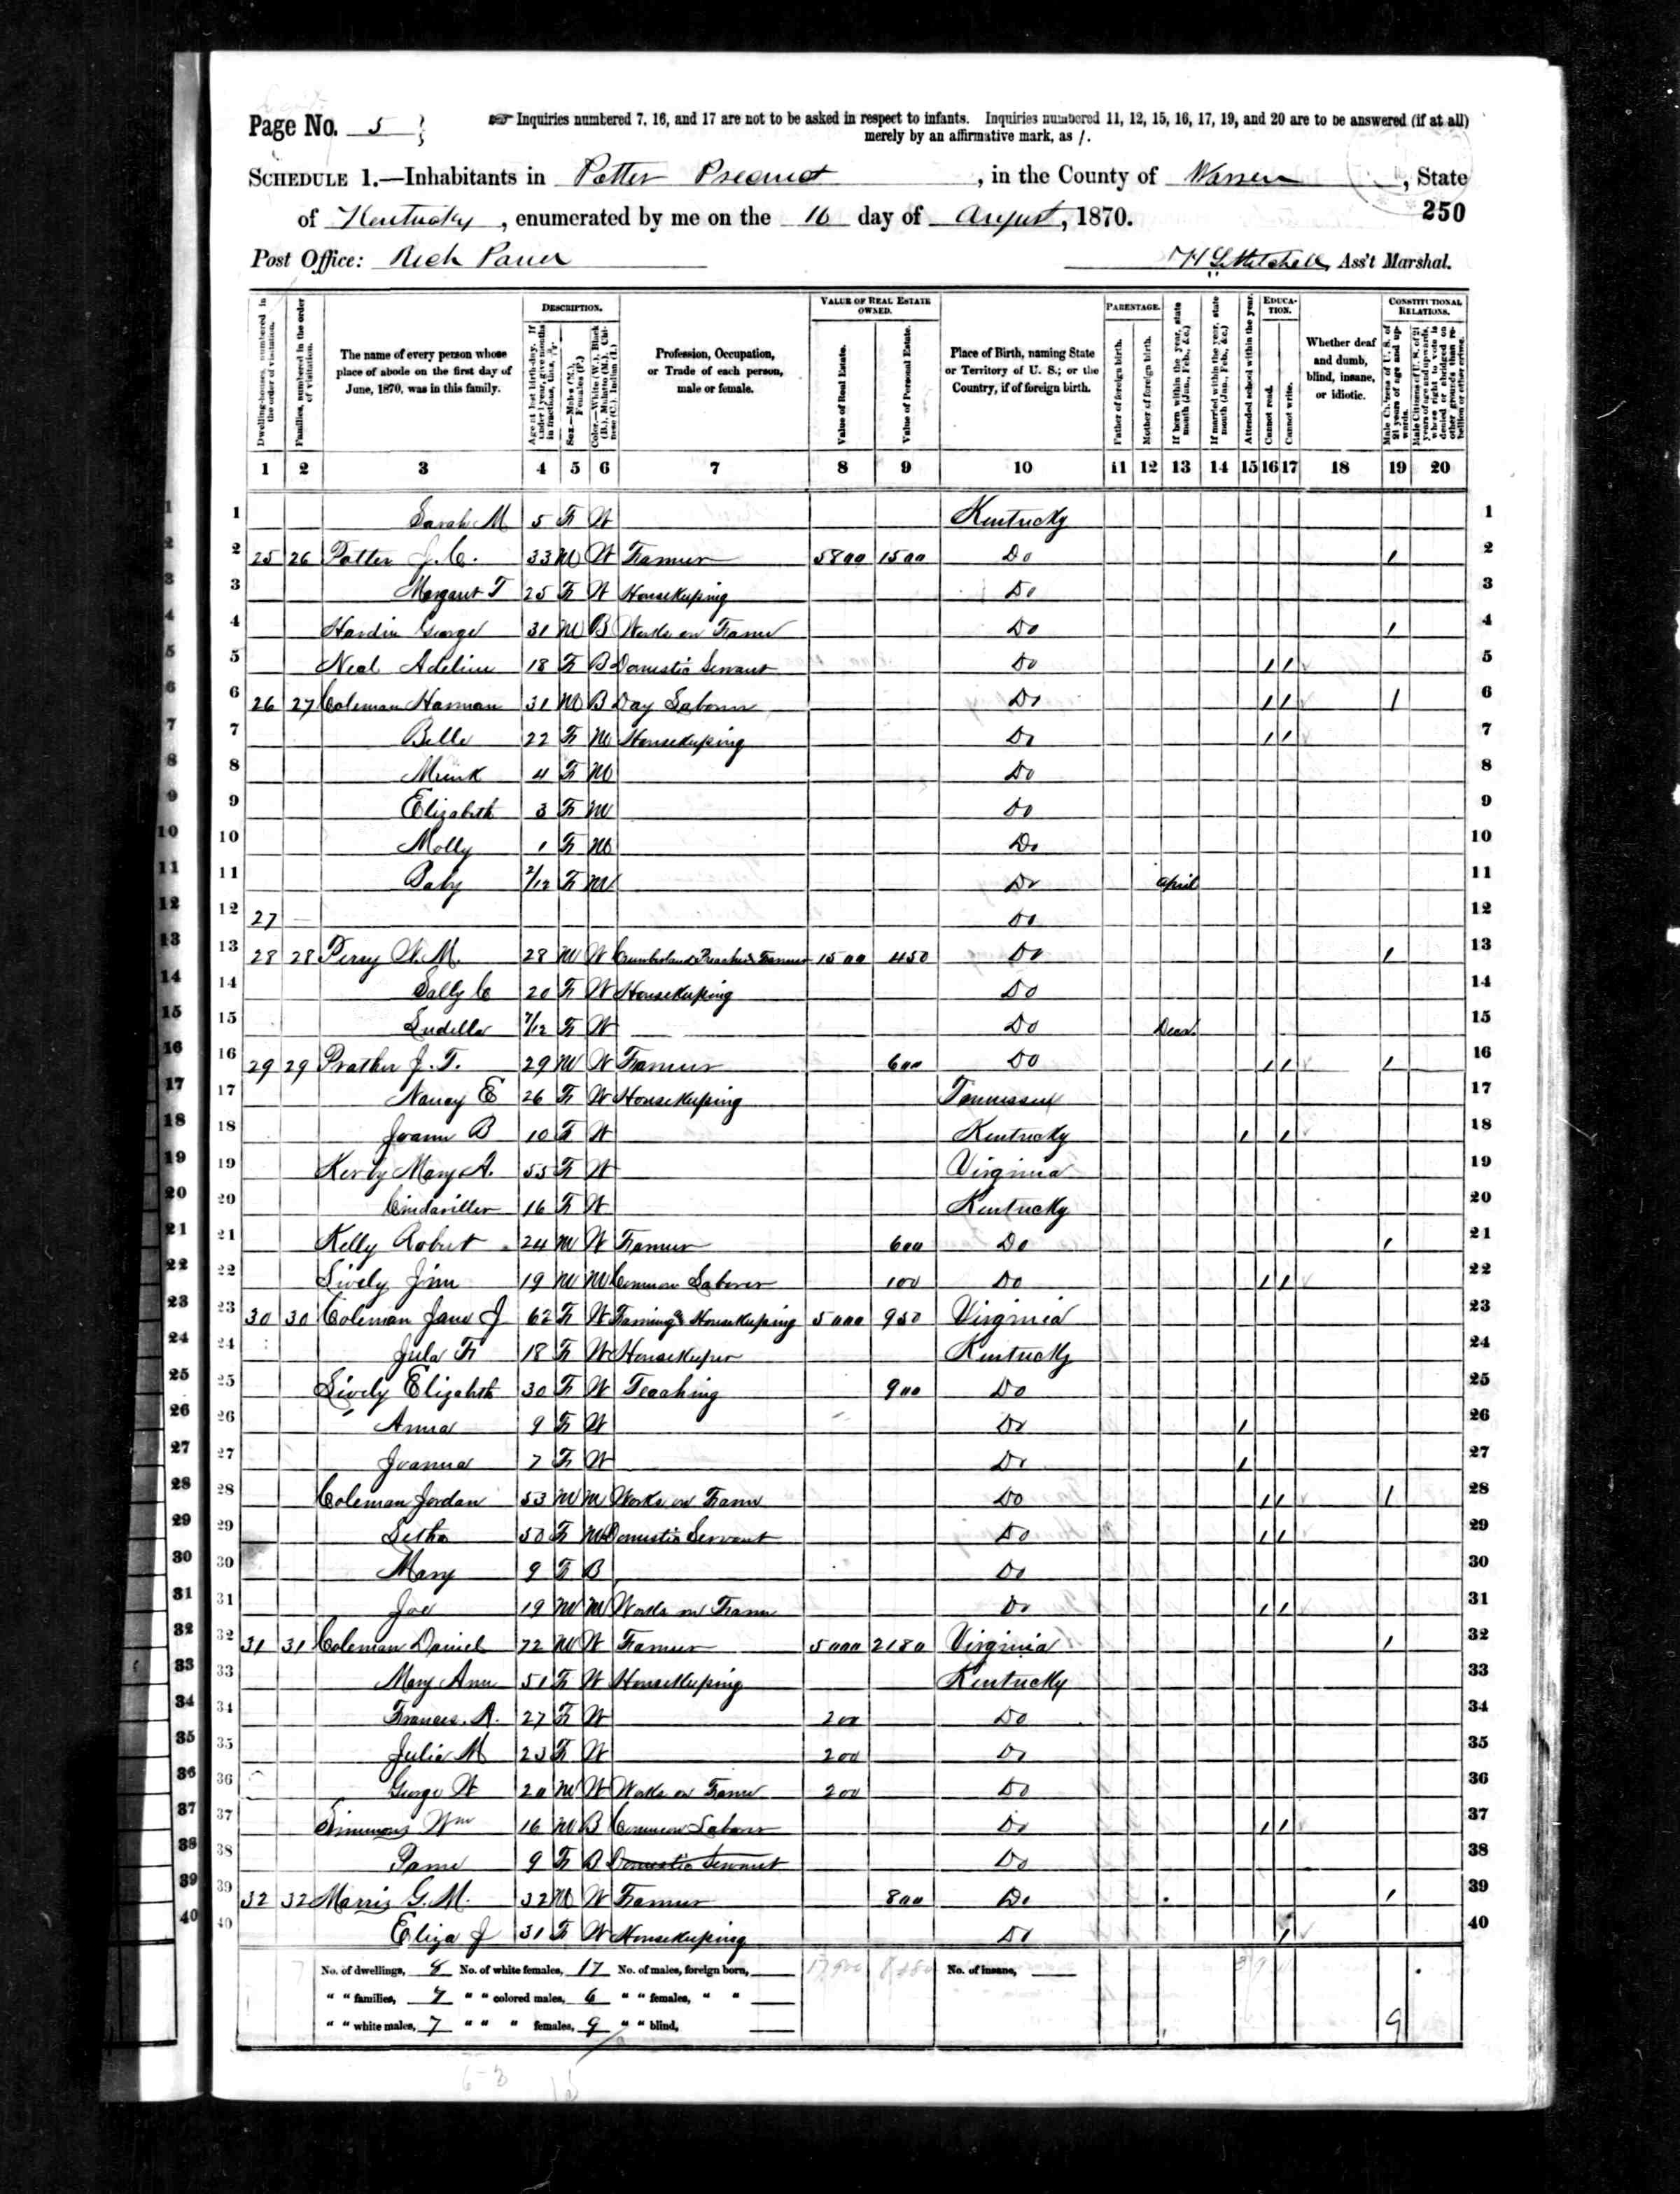 Page No. 5
Inquiries numbered 7, 16, and 17 are not to be asked in respect to infants. Inquiries numbered 11, 12, 15, 16, 17, 19, and 20 are to be answered (if at all)
merely by an affirmative mark, as /.
SCHEDULE 1.—Inhabitants in Potter Precinct, in the County of Warren, State
of Kentucky, enumerated by me on the 16 day of August, 1870.
250
Post Office: Rich Pond
H L Mitchell, Ass't Marshal.
Dwelling-houses, numbered in the order of visitation.
Families, numbered in the order of visitation.
The name of every person whose place of abode on the first day of June, 1870, was in this family.
DESCRIPTION.
Age at last birth-day. If under 1 year, give months in fractions, thus, 3/12.
Sex.—Males (M.), Females (F.)
Color.—White (W.), Black (B.), Mulatto (M.), Chinese (C.), Indian (I.)
Profession, Occupation, or Trade of each person, male or female.
VALUE OF REAL ESTATE OWNED.
Value of Real Estate.
Value of Personal Estate.
Place of Birth, naming State or Territory of U. S.; or the Country, if of foreign birth.
PARENTAGE.
Father of foreign birth.
Mother of foreign birth.
If born within the year, state month (Jan., Feb., &c.)
If married within the year, state month (Jan., Feb., &c.)
Attended school within the year.
EDUCATION.
Cannot read.
Cannot write.
Whether deaf and dumb, blind, insane, or idiotic.
CONSTITUTIONAL RELATIONS.
Male Citizens of U. S. of 21 years of age and upwards.
Male Citizens of U. S. of 21 years of age and upwards, where right to vote is denied or abridged on other grounds than rebellion or other crime.
1 2 3 4 5 6 7 8 9 10 11 12 13 14 15 16 17 18 19 20
1 Sarah M 5 F W Kentucky 1
2 25 26 Potter J. C. 33 M W Farmer 5800 1500 Do / 2
3 Margaret T 25 F W Housekeeping Do 3
4 Hardin George 31 M B Works on Farm Do / 4
5 Neal Adeline 18 F B Domestic Servant Do / / 5
6 26 27 Coleman Harman 31 M B Day Laborer Do / / / 6
7 Belle 22 F M Housekeeping Do / / 7
8 4 F M Do 8
9 Elizabeth 3 F M Do 9
10 Molly 1 F M Do 10
11 Baby 2/12 F M Do April 11
12 27 — Do 12
13 28 28 Perry W. M. 28 M W Cumberland Preacher & Farmer 1500 450 Do / 13
14 Sally C 20 F W Housekeeping Do 14
15 Ludella 7/12 F W Do Decr. 15
16 29 29 Prather J. T. 29 M W Farmer 600 Do / / / 16
17 Nancy E 26 F W Housekeeping Tennessee 17
18 Joann B 10 F W Kentucky / / 18
19 Kerby Mary A. 55 F W Virginia 19
20 16 F W Kentucky 20
21 Kelly Robert 24 M W Farmer 600 Do / 21
22 Lively Jim 19 M M Common Laborer 100 Do / / 22
23 30 30 Coleman Jane J 62 F W Farming & Housekeeping 5000 950 Virginia 23
24 Jula F 18 F W Housekeeper Kentucky 24
25 Lively Elizabeth 30 F W Teaching 900 Do 25
26 Anna 9 F W Do / 26
27 Joanna 7 F W Do / 27
28 Coleman Jordan 53 M M Works on Farm Do / / / 28
29 Letha 50 F M Domestic Servant Do / / 29
30 Mary 9 F B Do 30
31 Joe 19 M M Works on Farm Do / / 31
32 31 31 Coleman Daniel 72 M W Farmer 5000 2180 Virginia / 32
33 Mary Ann 51 F W Housekeeping Kentucky 33
34 Frances. A. 27 F W 200 Do 34
35 Julia M 23 F W 200 Do 35
36 George W 20 M W Works on Farm 200 Do 36
37 Simmons Wm 16 M B Common Laborer Do / / 37
38 9 F B Domestic Servant Do 38
39 32 32 Morris G. M. 32 M W Farmer 800 Do / 39
40 Eliza J 31 F W Housekeeping Do / 40
No. of dwellings, 8 No. of white females, 17 No. of males, foreign born, 17,900 No. of insane,
" " families, 7 " " colored males, 6 " " females, " "
" " white males, 7 " " " females, 9 " " blind, 9